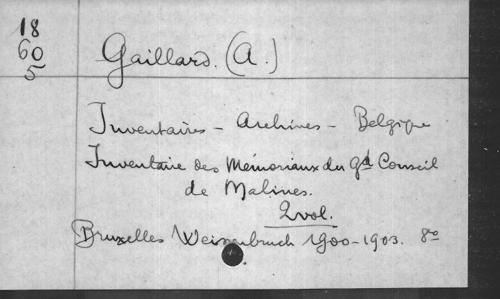 18
60
5
Gaillard. (A.)
Inventaires - Archives - Belgique
Inventaire des Mémoriaux du gd Conseil
de Malines.
2 vol.
Bruxelles Weissenbruch 1900-1903. 8vo